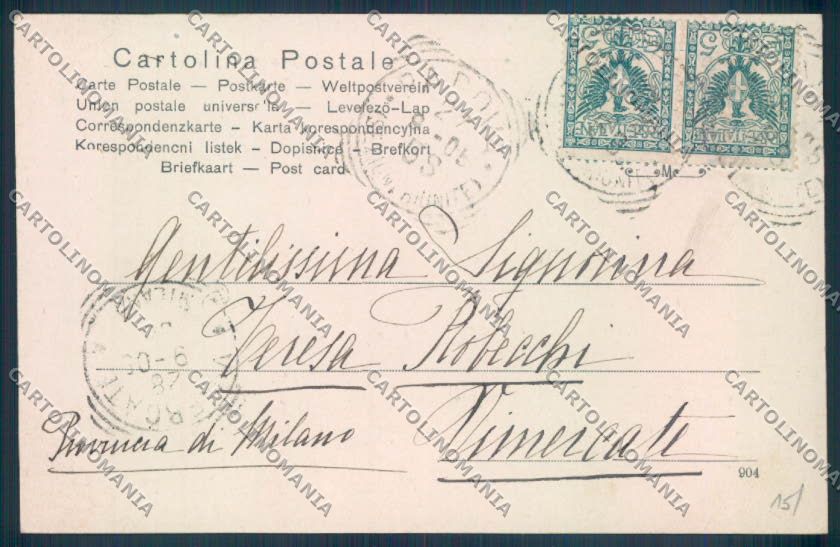 Cartolina Postale
Carte Postale — Postkarte — Weltpostverein
Union postale universelle — Levelező-Lap
Correspondenzkarte - Karta korespondencyjna
Korespondencni listek - Dopisnice - Brefkort
Briefkaart — Post card
M
Gentilissima Signorina
Teresa Robecchi
Vimercate
Provincia di Milano
904
15/
CARTOLINOMANIA